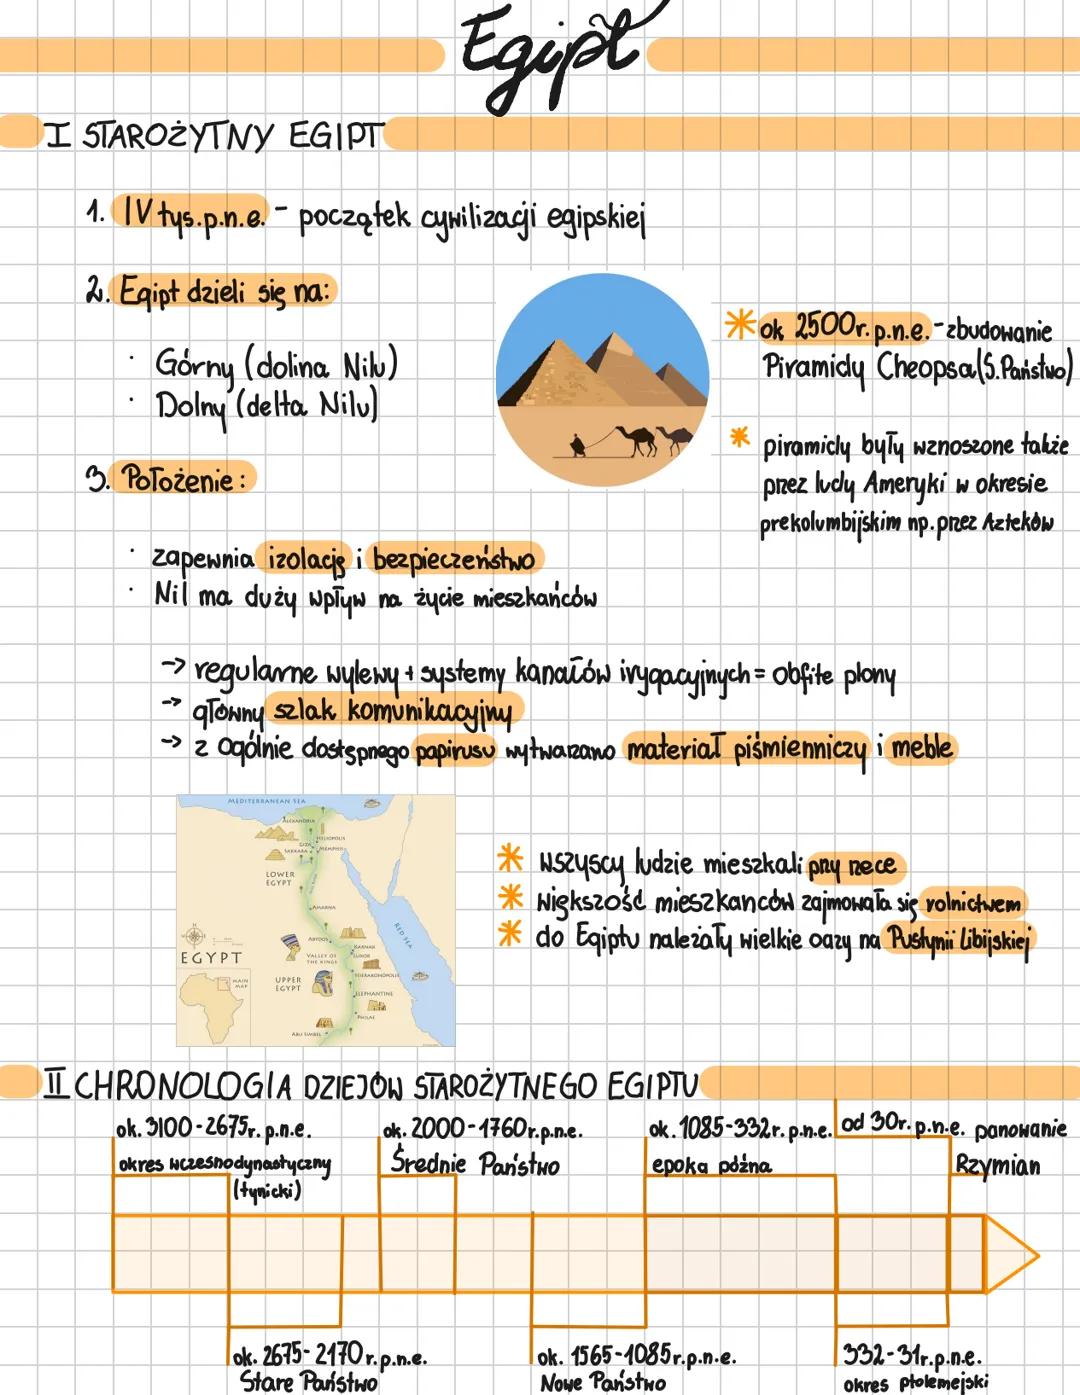 Egipt
I STAROŻYTNY EGIPT
1. IV tys.p.n.e. - początek cywilizacji egipskiej
2. Egipt dzieli się na:
· Górny (dolina Nilu)
· Dolny (delta Nilu)
* ok 2500r.p.n.e. - zbudowanie
Piramidy Cheopsa (S.Państwo)
* piramidy były wznoszone także
przez ludy Ameryki w okresie
prekolumbijskim np. przez Azteków
3. Położenie:
· zapewnia izolację i bezpieczeństwo
· Nil ma duży wpływ na życie mieszkańców
→ regularne wylewy + systemy kanałów irygacyjnych = obfite plony
→ główny szlak komunikacyjny
→ z ogólnie dostępnego papirusu wytwarzano materiał piśmienniczy i meble
MEDITERRANEAN SEA
ALEXANDRIA
HELIOPOLIS
GIZA
SAKKARA
MEMPHIS
LOWER
EGYPT
AMARNA
RED SEA
ABYDOS
KARNAK
LUXOR
VALLEY OF
THE KINGS
EGYPT
HIERAKONPOLIS
UPPER
EGYPT
MAIN
MAP
ELEPHANTINE
PHILAE
ABU SIMBEL
* wszyscy ludzie mieszkali przy rzece
* większość mieszkanców zajmowała się rolnictwem
* do Egiptu należały wielkie oazy na Pustynii Libijskiej
II CHRONOLOGIA DZIEJÓW STAROŻYTNEGO EGIPTU
ok. 3100-2675r. p.n.e.
okres wczesnodynastyczny
(tynicki)
ok. 2000-1760r.p.n.e.
Średnie Państwo
ok. 1085-332r. p.n.e.
epoka późna
od 30r. p.n.e. panowanie
Rzymian
ok. 2675-2170r.p.n.e.
Stare Państwo
ok. 1565-1085r.p.n.e.
Nowe Państwo
332-31r.p.n.e.
okres ptolemejski